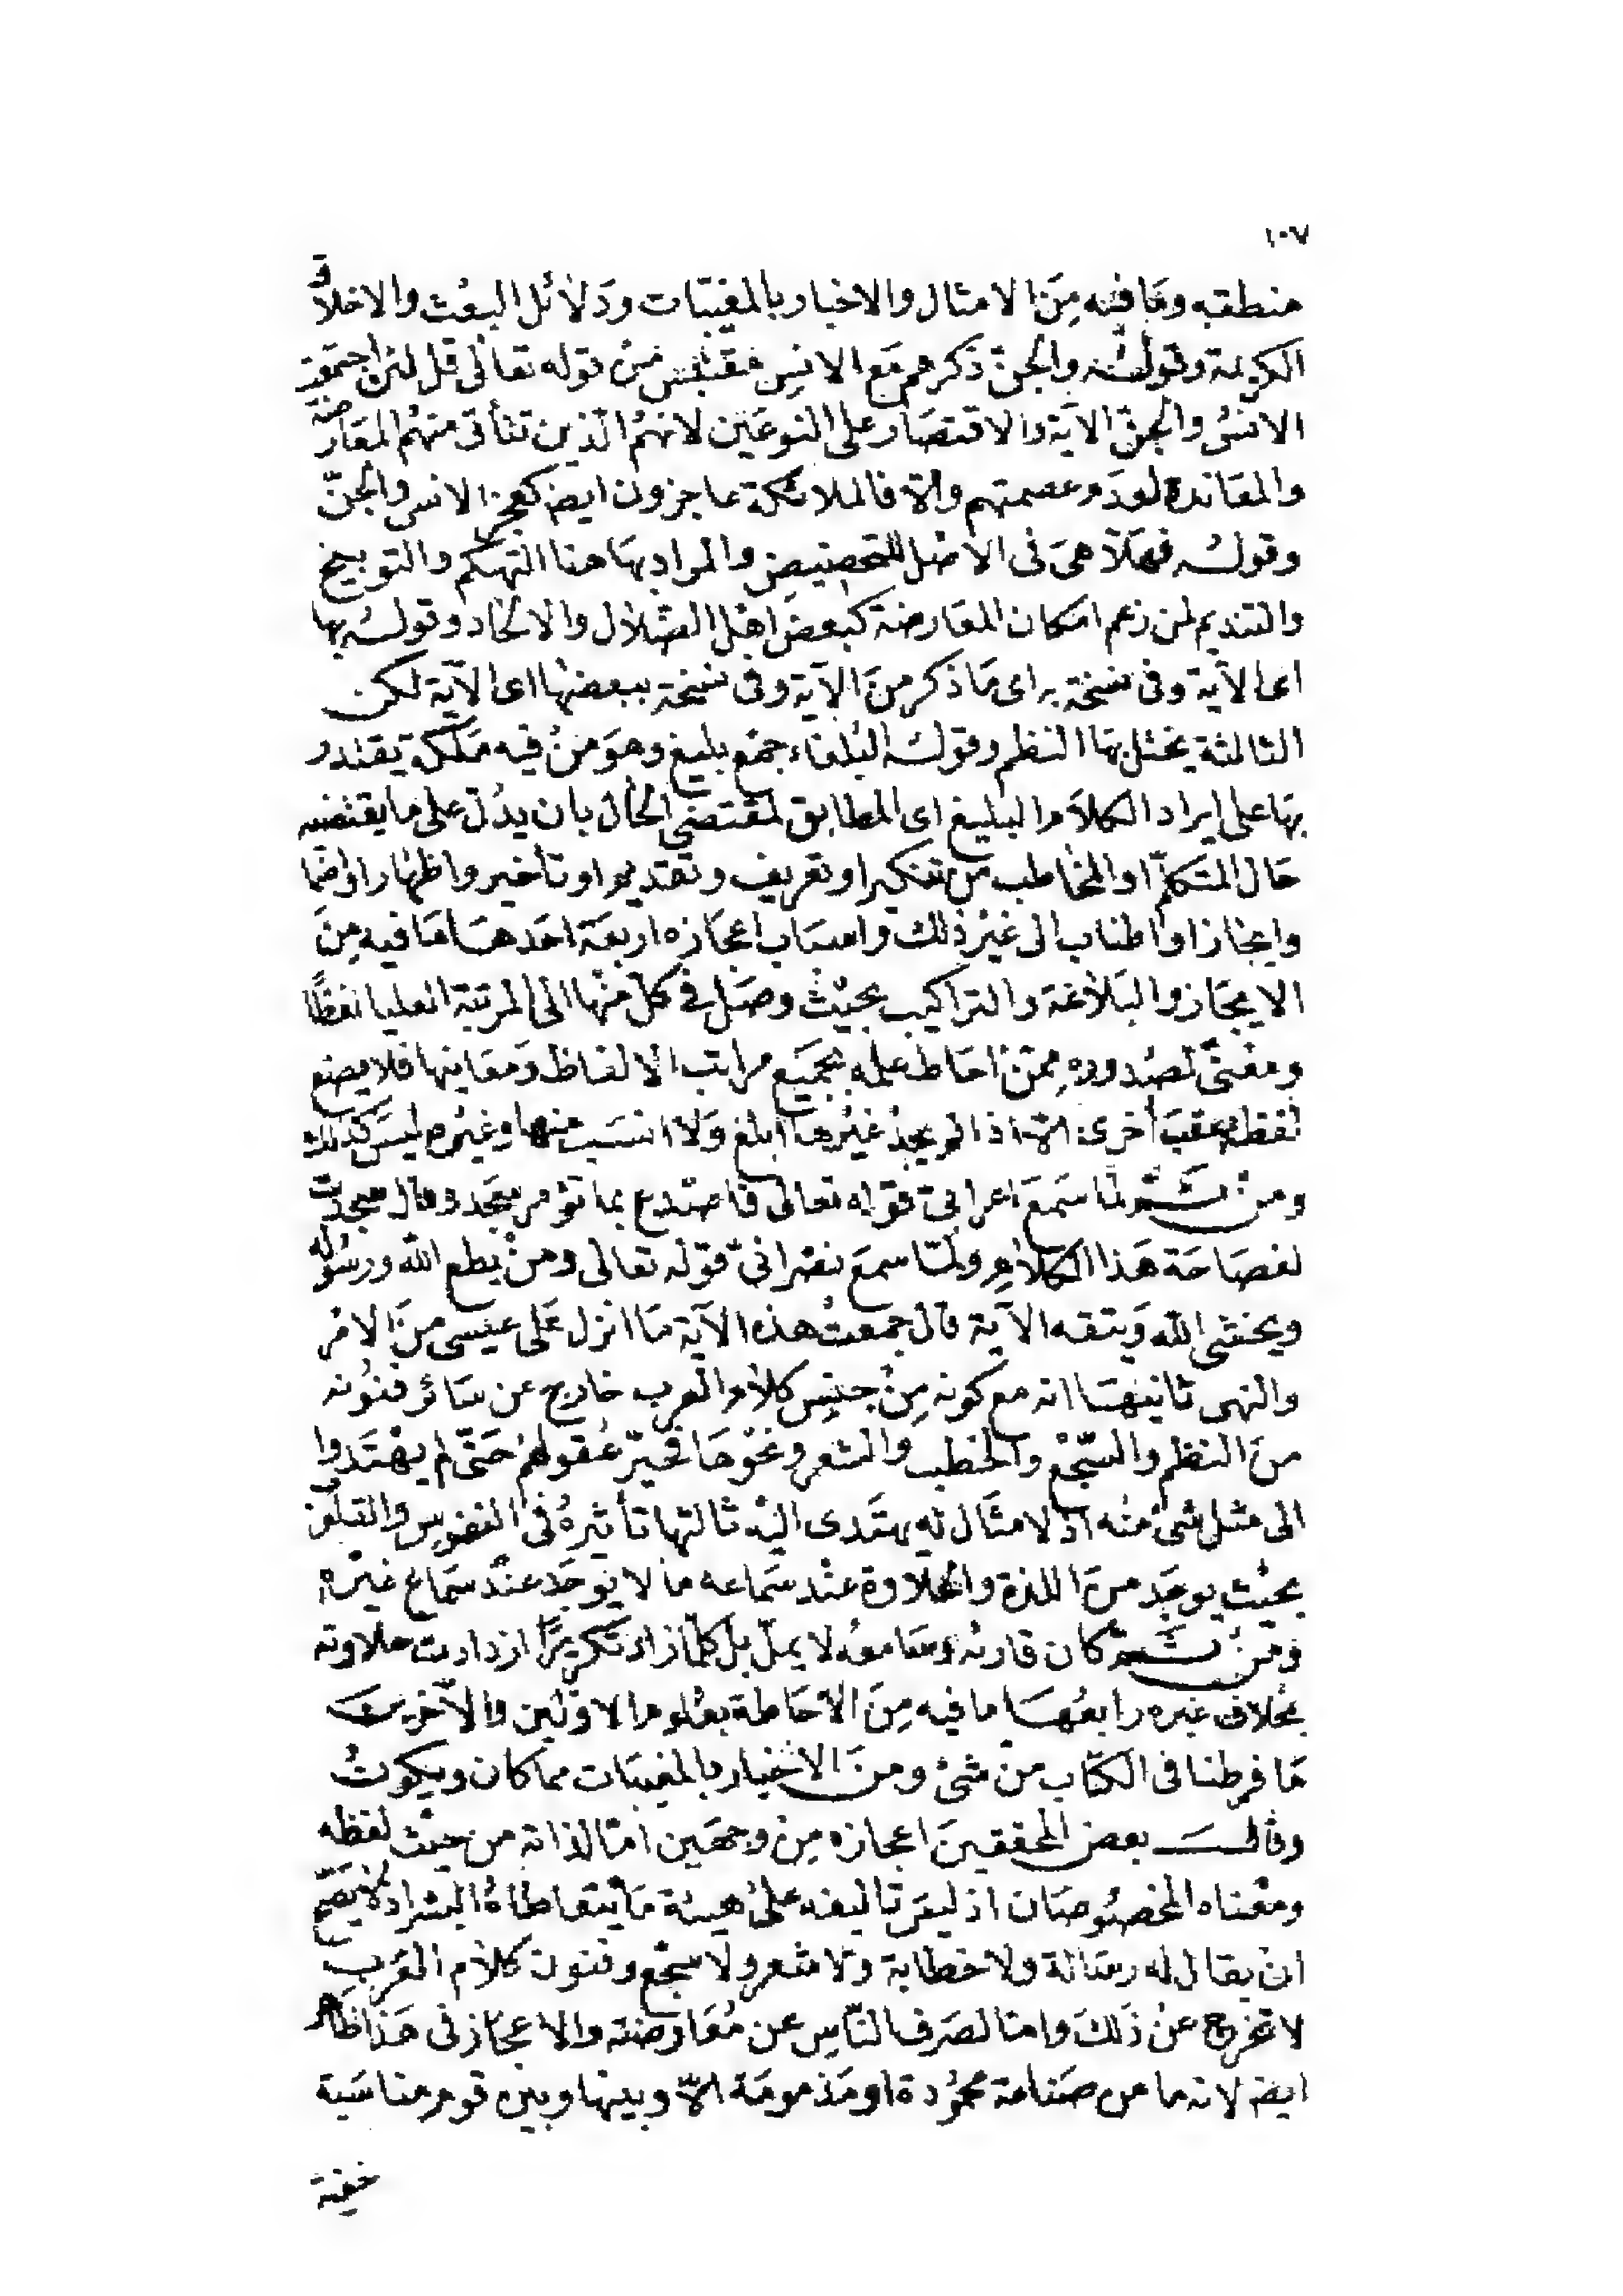 ١٠٧
منطقه وما فيه مِنَ الامثال والاخبار بالمغيّبات ودَلائل البعْث والاخلاق
الكريمة وقولُـه والجنّ ذكرهم مَع الانسِ مقتبس مِنْ قوله تعالى قل لئن اجتمَعت
الانسُ والجنّ الآية والاقتصَار على النوعَين لانهمُ الذين تتأتى منهُم المعَارضة
والمعَاندة لعدم عصمتهم والا فالملائكة عاجزون ايضا كعجز الانس والجنّ
وقولـه فهَلّا هىَ فى الاصْل للتحضيض والمراد بهَا هنا التهكم والتوبيخ
والتنديم لمن زعم امكان المعَارضة كبَعض اهْل الضّلال والالحاد وقولـه بها
اى الآية وفى نسخة به اى مَا ذكر منَ الآية وفى نسخة ببعضها اى الآية لكن
الثالثة يختل بهَا النظم وقولـه البُلغاء جمْع بليغ وهوَ منْ فيه مَلَكة يَقتدر
بهَا على ايراد الكلاَم البليغ اى المطابق لمقتضى الحَال بان يدُلّ على ما يقتضيه
حَال المتكلّم او المخاطب من تنكير او تعريف وتقديم او تأخير واظهَار او اضما
وايجَاز او اطناب الى غيْر ذلك واسبَاب اعجَازه اربعَة احَدهَا مَا فيه مِنَ
الايجَاز والبَلاغة والتراكيب بحيْث وصَل فى كل منْها الى المرتبة العليا لفظًا
ومعْنىً لصُدوره مِمّنْ احَاط علمه بجَميَع مراتب الالفاظ وَمعَانيها فلا يضع
لفظة عقبَ اخرى الا اذا لم يجدْ غيْرهَا ابلغ وَلا انسَب منها وغيْره ليسَ كذلك
ومنْ ثَـمّ لمّا سَمعَ اعرابىّ قوْله تعالى فاصْدع بما تؤمر سجَد وقال سجدت
لفصَاحَة هَذا الكلاَم ولمّا سمعَ نصْرانىّ قوْله تعالى ومنْ يطع الله ورسُوله
ويخشى الله وَيتقه الآية قال جمعتْ هذه الآية مَا انزل عَلى عيسى منَ الامْر
والنهى ثانيهَا انه مع كونه مِنْ جنِس كلاَم العرب خارج عن سَائر فنُونه
منَ النظم والسّجْع والخطب والشعر ونحْوهَا فحيّر عُقولهمْ حَتّى لم يهْتَدوا
الى مثل شىْ منْه اذ لا مثَال له يهتَدى اليْه ثالثها تأثيرهُ فى النفوس والقلوب
بحيْث يوجَد منَ اللذة والحلاوة عنْد سَماعه ما لا يوجَد عنْد سمَاع غيْره
ومنْ ثَـمّ كان قارئه وَسَامعُه لا يملّ بل كلما زاد تَكريرًا ازدادت حلاوته
بخلاف غيره رابعُهَا ما فيه مِنَ الاحَاطة بعُلوم الاوّلين والآخرينَ
مَا فرطنا فى الكتَاب منْ شىْ ومنَ الاخبار بالمغيبَات مما كان ويكونُ
وقالـ بعض المحققينَ اعجازه مِنْ وجهَين امّا لذاته من حيْث لفظه
ومعْناه المخصُوصَان اذ ليسَ تاليفه على هيئة مَا يتعَاطاهُ البشر اذ لا يصح
انْ يقال له رسَالة ولا خطابة وَلا شعر ولا سجْع وفنون كلاَم العَرب
لا تخرج عنْ ذَلكَ وامّا لصَرف النّاسِ عن مُعَارضته والاعجَاز فى هَذا ظاهر
ايضا لانه ما من صَناعة محمُودة او مَذمومَة الّا وبينها وبين قوم مناسَبة
خفية